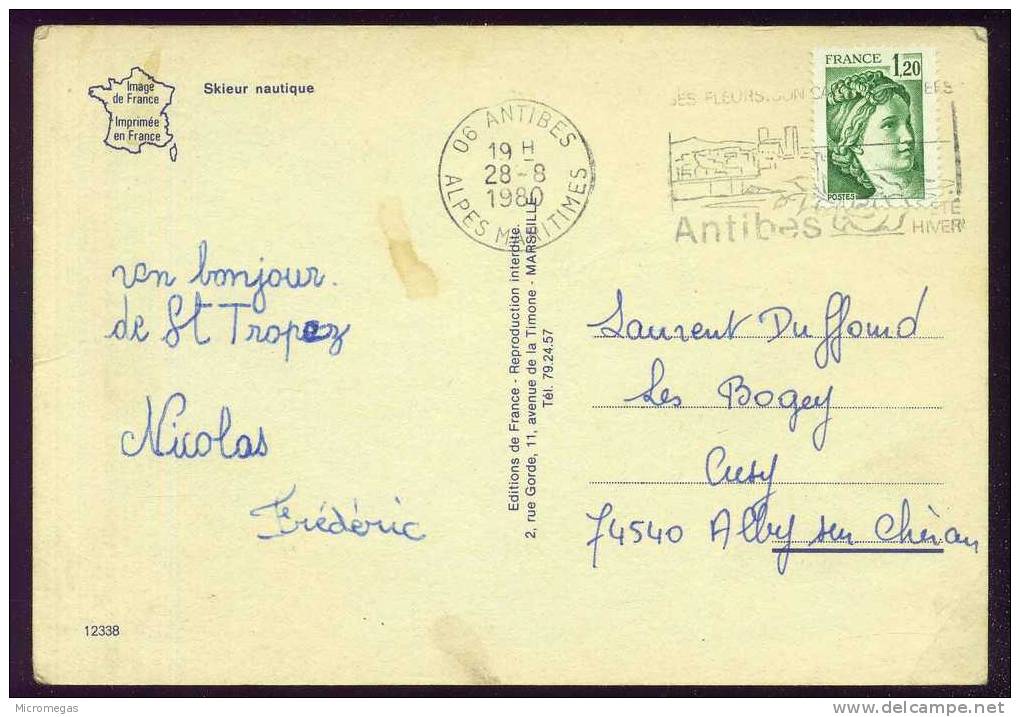 Image
de France
Imprimée
en France
Skieur nautique
06 ANTIBES
19 H
28-8
1980
ALPES MARITIMES
SES FLEURS. SON
Antibes
ÉTÉ
HIVER
FRANCE 1,20
POSTES
un bonjour.
de St Tropez
Nicolas
Frédéric
Editions de France - Reproduction interdite.
2, rue Gorde, 11, avenue de la Timone - MARSEILLE
Tél. 79.24.57
Laurent Duffond
Les Bogey
Cusy
74540 Alby sur Chéran
12338
Micromegas
www.delcampe.net